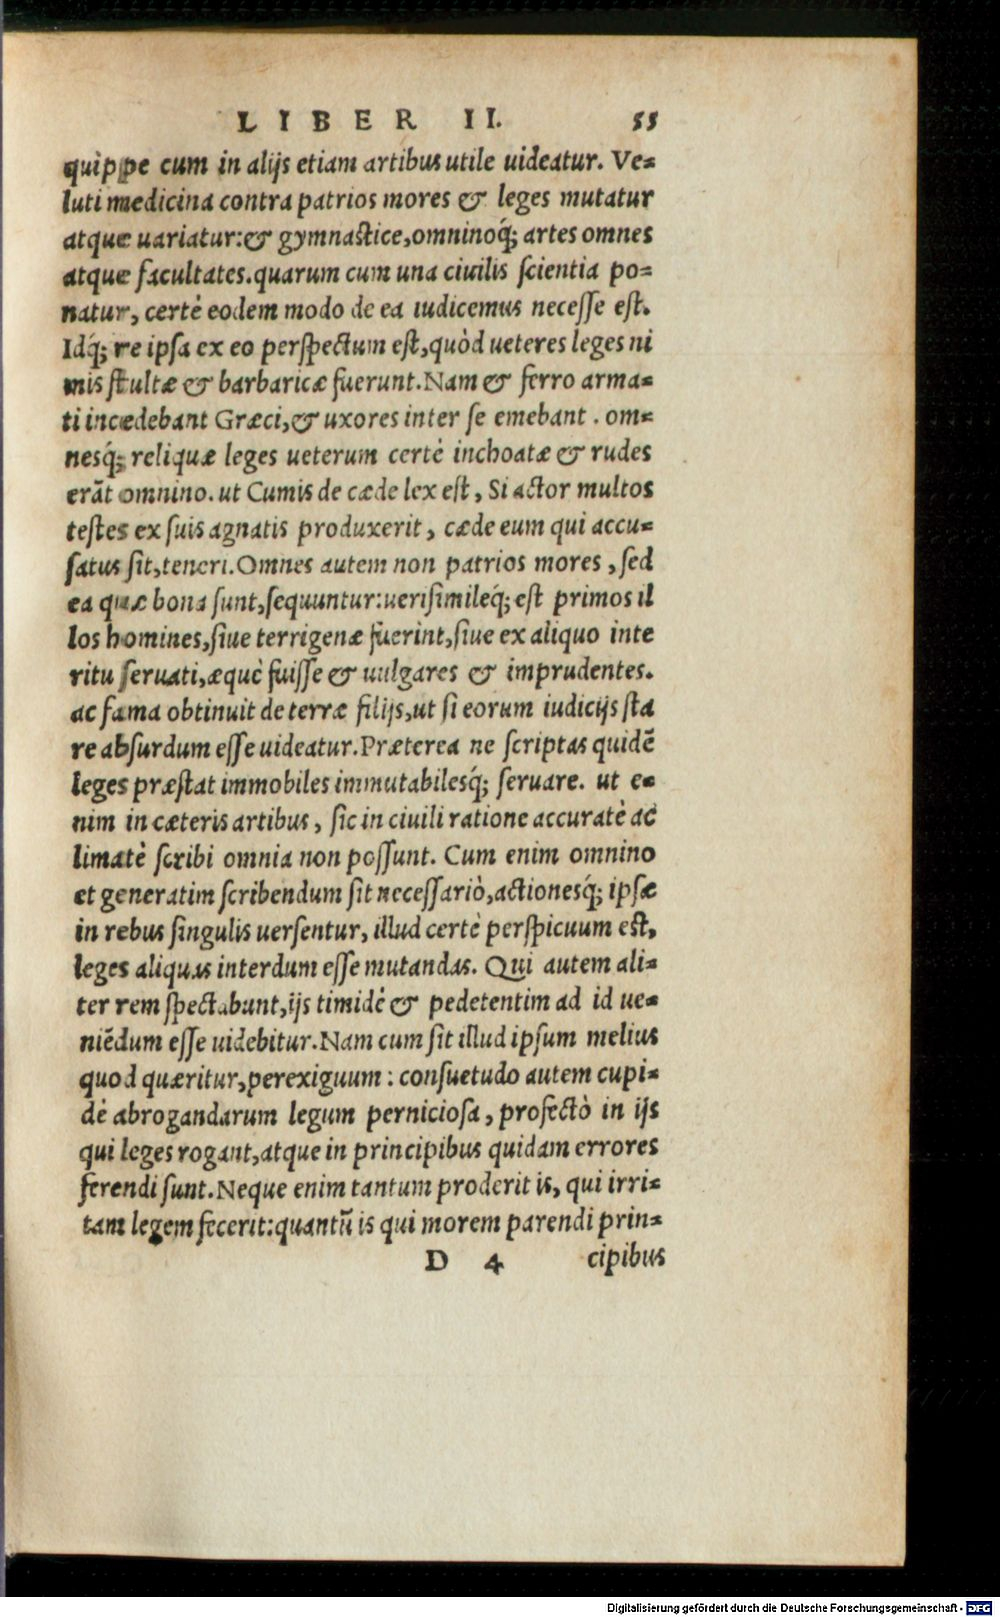 LIBER II. 55
quippe cum in alijs etiam artibus utile uideatur. Ve=
luti medicina contra patrios mores & leges mutatur
atque uariatur:& gymnastice,omninoq́; artes omnes
atque facultates.quarum cum una ciuilis scientia po=
natur, certè eodem modo de ea iudicemus necesse est.
Idq́; re ipsa ex eo perspectum est,quòd ueteres leges ni
mis stultæ & barbaricæ fuerunt.Nam & ferro arma=
ti incedebant Græci,& uxores inter se emebant . om=
nesq́; reliquæ leges ueterum certè inchoatæ & rudes
erãt omnino. ut Cumis de cæde lex est, Si actor multos
testes ex suis agnatis produxerit, cæde eum qui accu=
satus sit,teneri.Omnes autem non patrios mores ,sed
ea quæ bona sunt,sequuntur:uerisimileq́; est primos il
los homines,siue terrigenæ fuerint,siue ex aliquo inte
ritu seruati,æquè fuisse & uulgares & imprudentes.
ac fama obtinuit de terræ filijs,ut si eorum iudicijs sta
re absurdum esse uideatur.Præterea ne scriptas quidẽ
leges præstat immobiles immutabilesq́; seruare. ut e=
nim in cæteris artibus, sic in ciuili ratione accuratè ac
limatè scribi omnia non possunt. Cum enim omnino
et generatim scribendum sit necessariò,actionesq́; ipsæ
in rebus singulis uersentur, illud certè perspicuum est,
leges aliquas interdum esse mutandas. Qui autem ali=
ter rem spectabunt,ijs timidè & pedetentim ad id ue=
niẽdum esse uidebitur.Nam cum sit illud ipsum melius
quod quæritur,perexiguum : consuetudo autem cupi=
dè abrogandarum legum perniciosa, profectò in ijs
qui leges rogant,atque in principibus quidam errores
ferendi sunt.Neque enim tantum proderit is, qui irri=
tam legem fecerit:quantũ is qui morem parendi prin=
D 4 cipibus
Digitalisierung gefördert durch die Deutsche Forschungsgemeinschaft - DFG